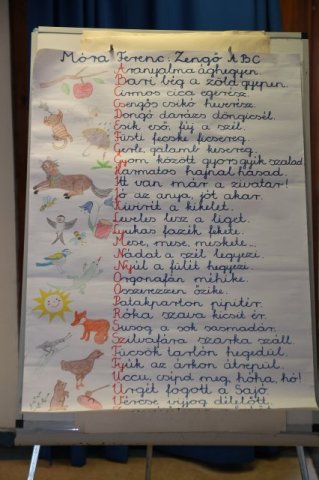 Móra Ferenc: Zengő ABC
Aranyalma ághegyen.
Bari bég a zöld gyepen.
Cirmos cica egerész.
Csengős csikó heverész.
Dongó darázs döngicsél.
Esik eső, fúj a szél.
Füsti fecske ficsereg.
Gerle, galamb kesereg.
Gyom között gyors gyík szalad
Harmatos hajnal hasad.
Itt van már a zivatar!
Jó az anya, jót akar.
Kivirít a kikelet.
Leveles lesz a liget.
Lyukas fazék fekete.
Mese, mese, meskete...
Nádat a szél legyezi.
Nyúl a fülit hegyezi.
Orgonafán méhike.
Összerezzen őzike.
Patakparton pipitér.
Róka szava kicsit ér.
Susog a sok sasmadár.
Szilvafára szarka száll.
Tücsök tarlón hegedül.
Tyúk az árkon átrepül.
Uccu, csípd meg, hóha, hó!
Ürgét fogott a Sajó.
Vércse vijjog délelőtt.